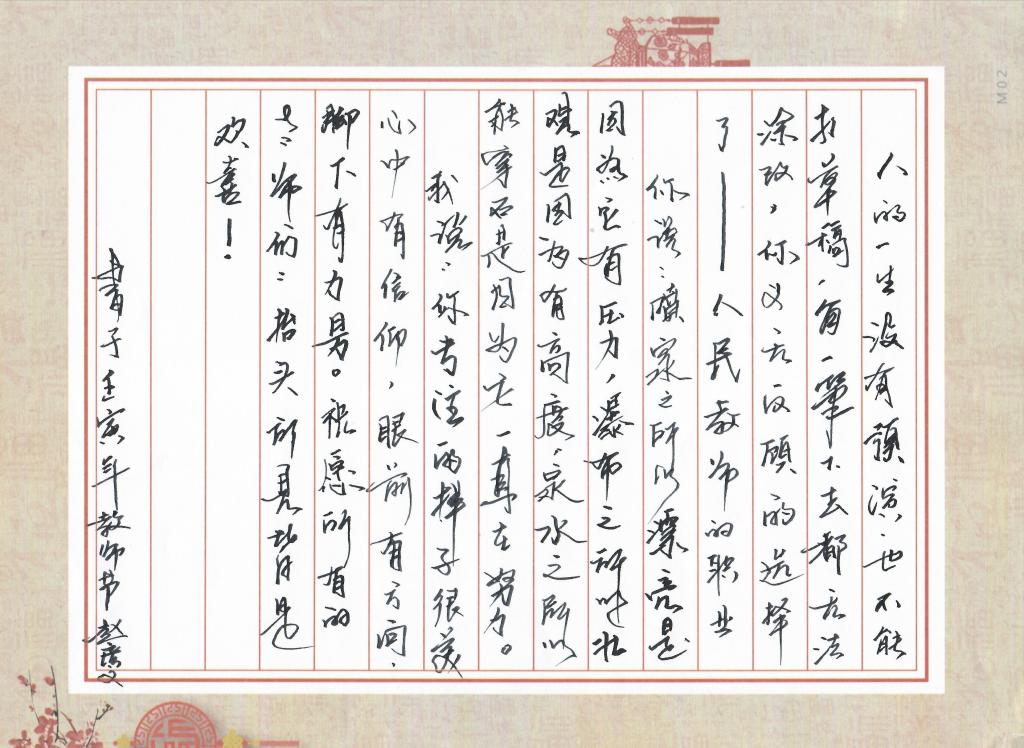 人的一生没有预演,也不能
打草稿,每一笔下去都无法
涂改,你义无反顾的选择
了——人民教师的职业
你说:喷泉之所以漂亮是
因为它有压力,瀑布之所以壮
观是因为有高度,泉水之所以
能穿石是因为它一直在努力。
我说:你专注的样子很美
心中有信仰,眼前有方向,
脚下有力量。祝愿所有的
老师们:抬头所见皆是
欢喜!
书于壬寅年教师节
M02